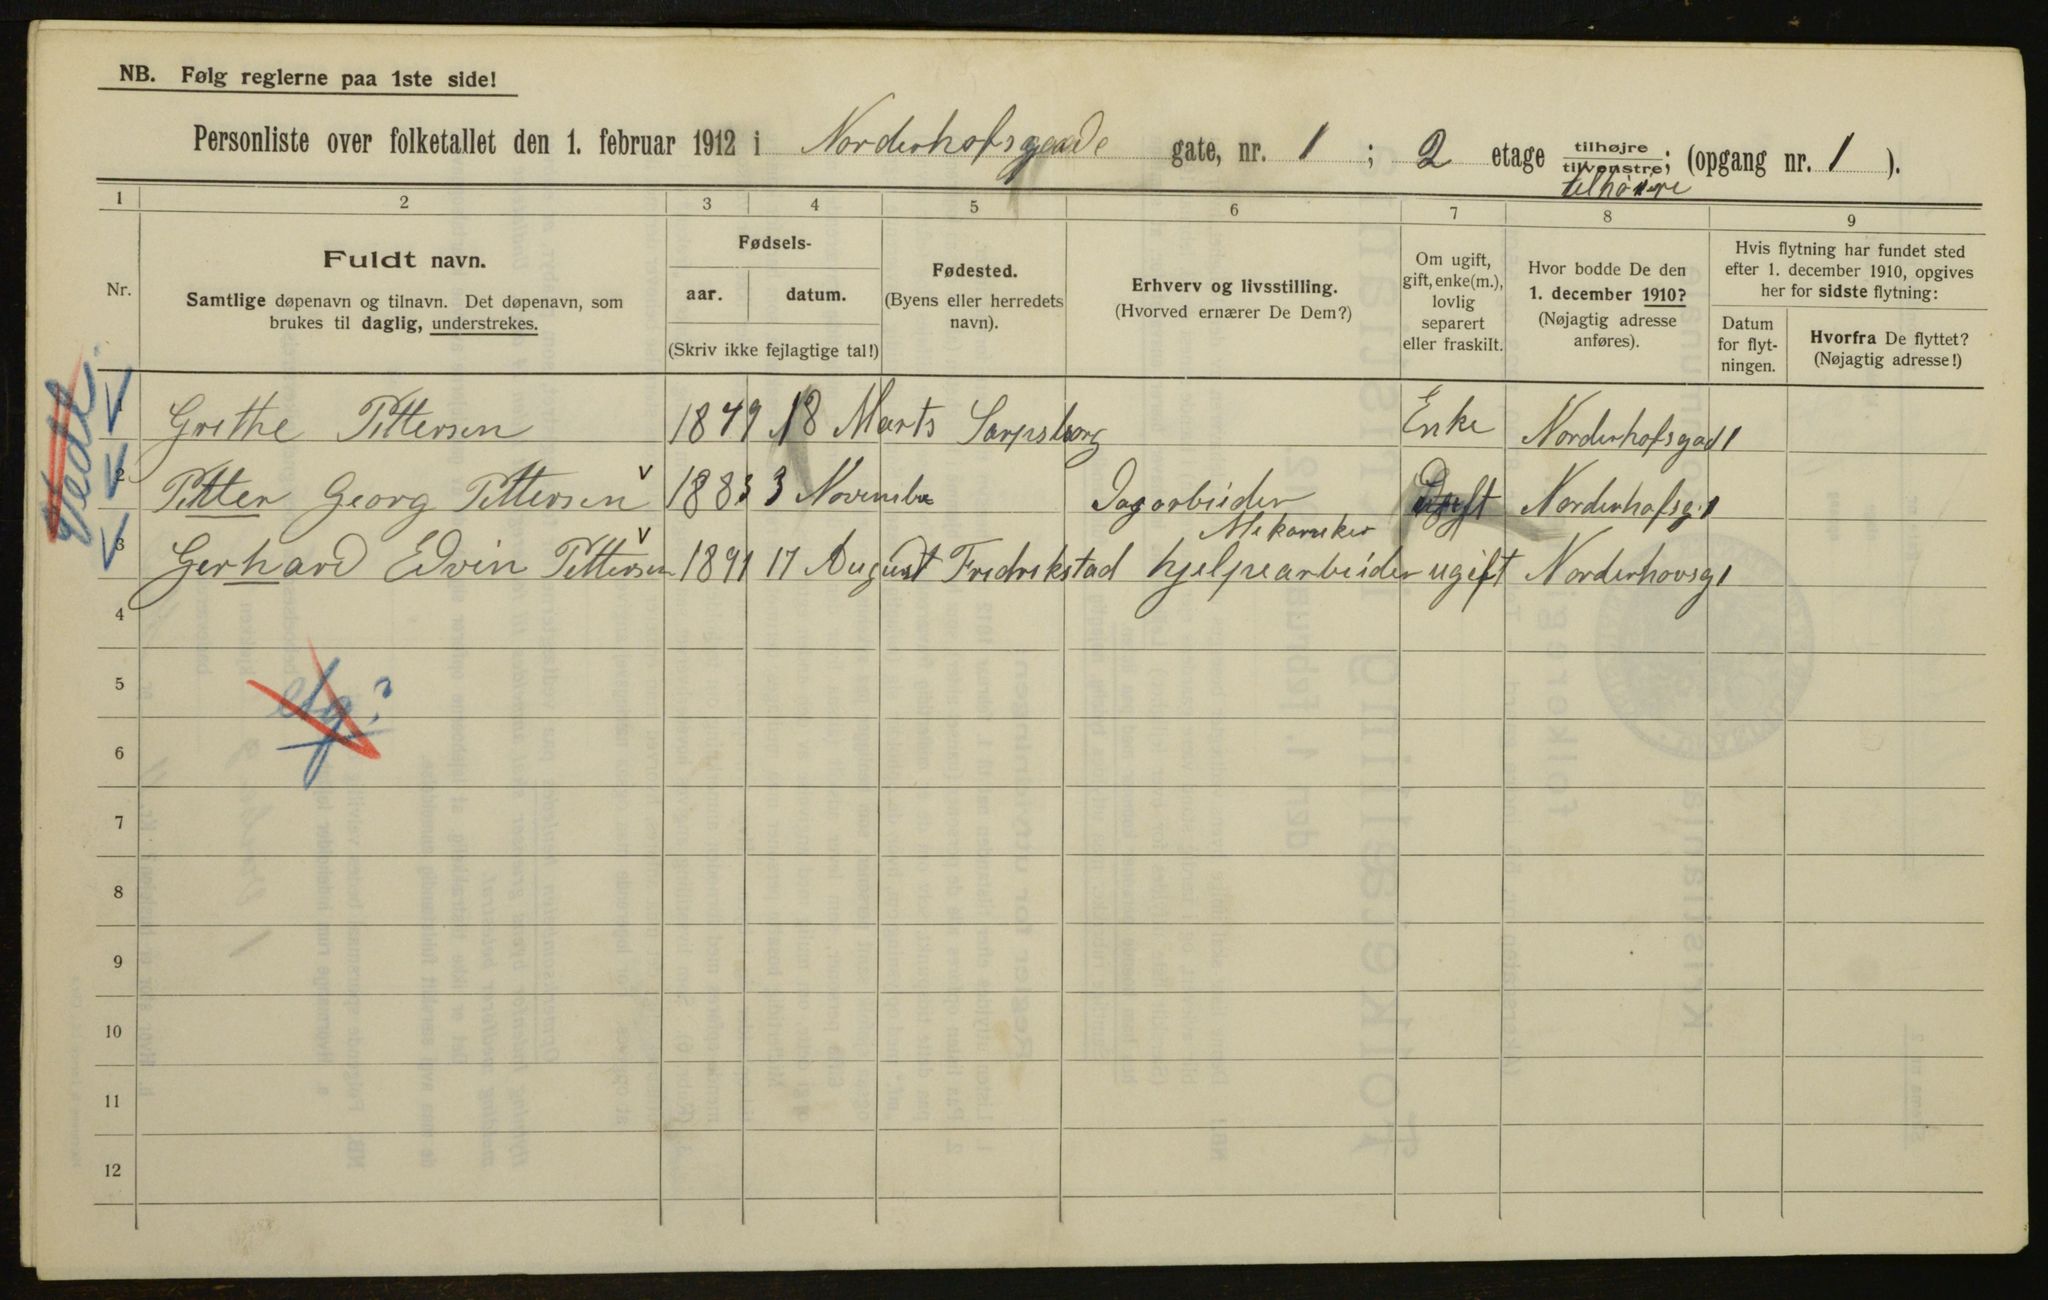 NB. Følg reglerne paa 1ste side!
Personliste over folketallet den 1. februar 1912 i Norderhofsgade gate, nr. 1 ; 2 etage tilhøjre tilvenstre; (opgang nr. 1 ).
tilhøire
1 2 3 4 5 6 7 8 9
Nr.
Fuldt navn.
Samtlige døpenavn og tilnavn. Det døpenavn, som
brukes til daglig, understrekes.
Fødsels-
aar. datum.
(Skriv ikke fejlagtige tal!)
Fødested.
(Byens eller herredets
navn).
Erhverv og livsstilling.
(Hvorved ernærer De Dem?)
Om ugift,
gift, enke(m.),
lovlig
separert
eller fraskilt.
Hvor bodde De den
1. december 1910?
(Nøjagtig adresse
anføres).
Hvis flytning har fundet sted
efter 1. december 1910, opgives
her for sidste flytning:
Datum
for flyt-
ningen.
Hvorfra De flyttet?
(Nøjagtig adresse!)
1 Grethe Pettersen 1849 18 Marts Sarpsborg Enke Norderhofsgad 1
2 Petter Georg Pettersen 1883 3 Novembe Dagarbeider Ugift Norderhofsg. 1
Mekaniker
3 Gerhard Edvin Pettersen 1891 17 August Fredrikstad hjelpearbeider ugift Norderhovsg 1
4
5
6
7
8
9
10
11
12